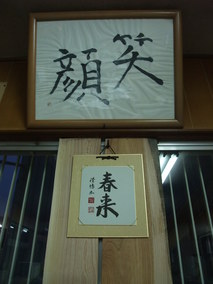 笑顔
春来